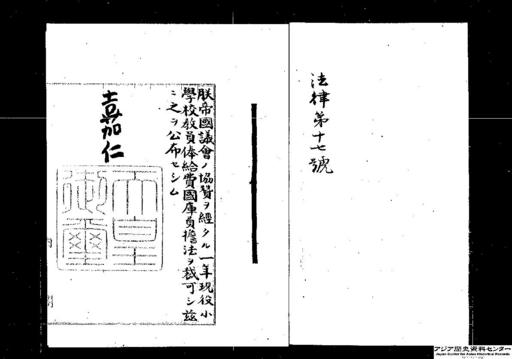 法律第十七號
朕帝國議會ノ協贊ヲ經タル一年現役小
學校敎員俸給費國庫負擔法ヲ裁可シ茲
ニ之ヲ公布セシム
嘉仁
天皇
御璽
アジア歴史資料センター
Japan Center for Asian Historical Records